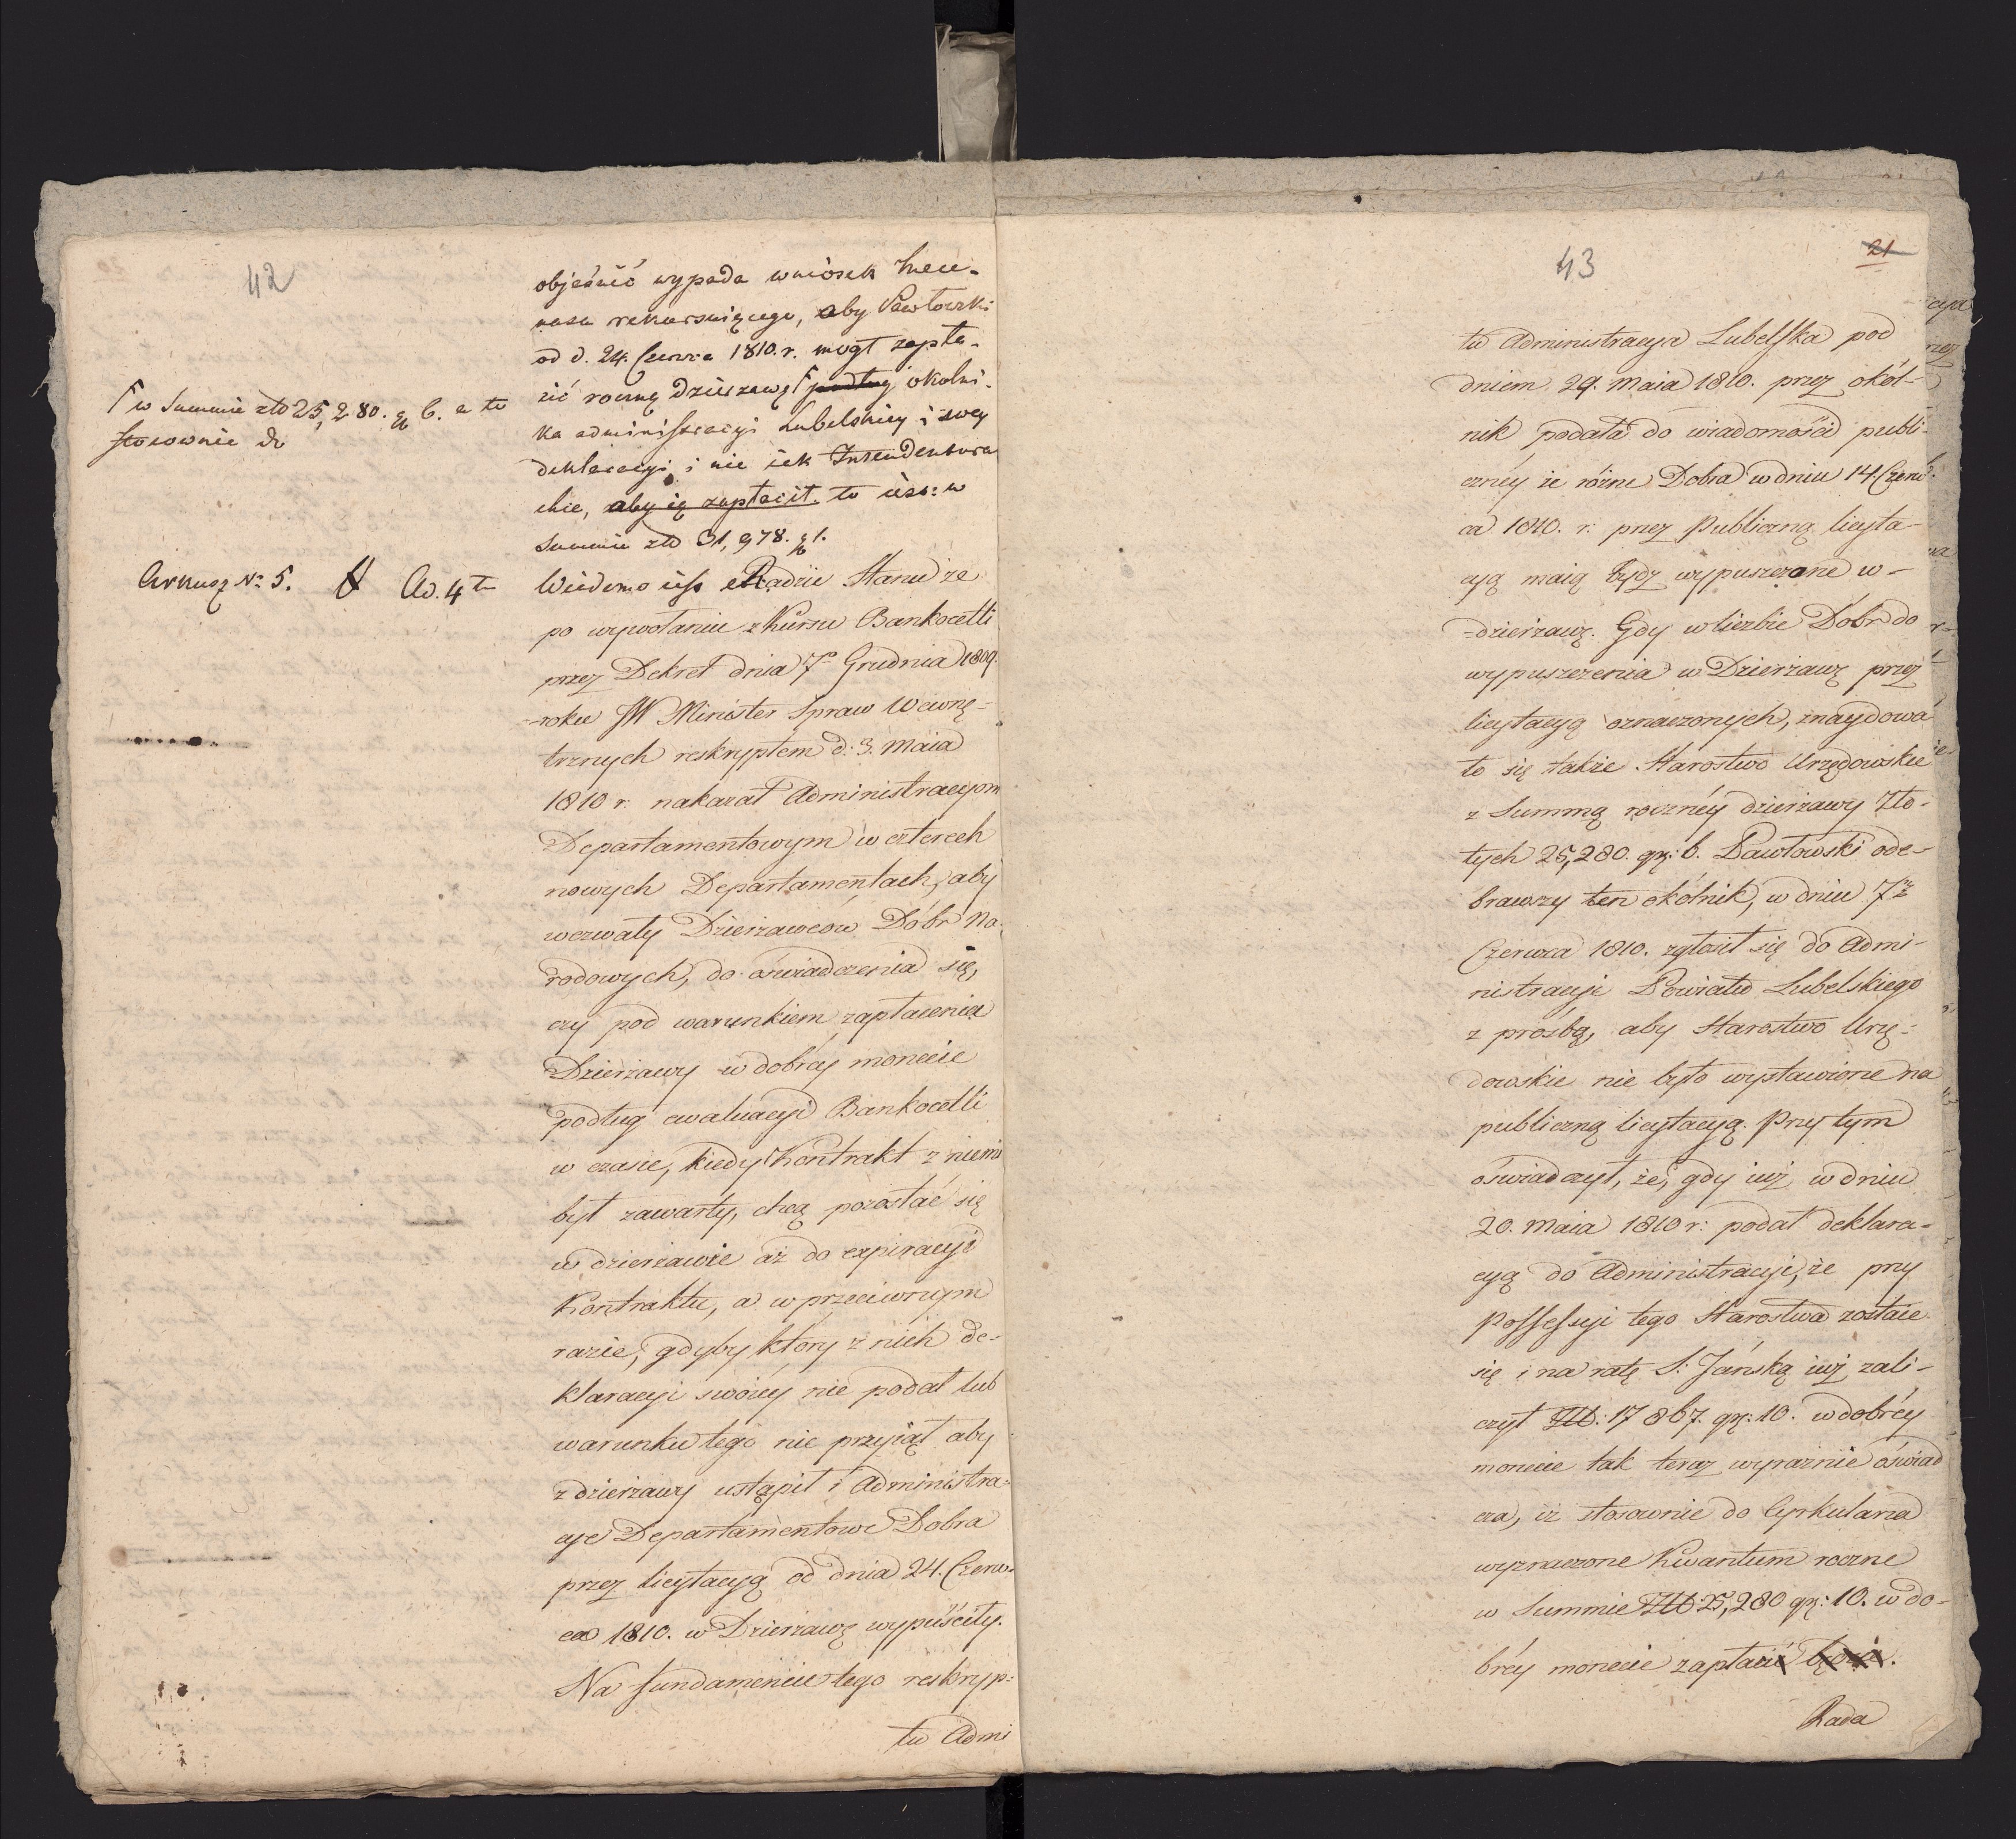 42
objaśnić wypada wniosek
rekursuiącego, aby Pawłowski
od d. 24. Czerwca 1810. r. mógł zapła-
cić roczną dzierzawę ꟻ podług okolni-
ka administracyi Lubelskiey i swey
deklaracyi i nie iak Intendentura
chce, aby ią zapłacił. to iest: w
Summie złł 31,978. gr 1.
ꟻ w Summie złł 25,280. gr 6. a to
stosownie do
Arkusz No 5.
Ad. 4tum
Wiadomo iest Radzie Stanu że
po wywołaniu z Kursu Bankocetli
przez Dekret dnia 7o Grudnia 1809.
roku JW Minister Spraw Wewnę-
trznych reskryptem d: 3. Maia
1810 r. nakazał Administracyom
Departamentowym w czterech
nowych Departamentach, aby
wezwały Dzierżawców Dóbr Na-
rodowych, do oświadczenia się,
czy pod warunkiem zapłacenia
Dzierżawy w dobrey monecie
podług ewaluacyi Bankocetli
w czasie, kiedy Kontrakt z niemi
był zawarty, chcą pozostać się
w dzierżawie aż do expiracyi
Kontraktu, a w przeciwnym
razie, gdyby który z nich de-
klaracyi swoiey nie podał lub
warunku tego nie przyiął aby
z dzierżawy ustąpił i Administra-
cye Departamentowe Dobra
przez licytacyą od dnia 24. Czerw-
ca 1810. w Dzierżawę wypuściły.
Na fundamencie tego reskryp-
tu Admi
43
21
tu Administracya Lubelska pod
dniem 29. Maia 1810. przez okól-
nik podała do wiadomości publi-
czney że różne Dobra w dniu 14 Czerw-
ca 1810. r: przez Publiczną licyta-
cyą maią bydź wypuszczone w
dzierżawę. Gdy w liczbie Dobr do
wypuszczenia w Dzierżawę przez
licytacyą oznaczonych, znaydowa-
ło się także Starostwo Urzędowskie
z Summą roczney dzierżawy Zło-
tych 25,280. gr: 6. Pawłowski ode-
brawszy ten okólnik, w dniu 7m
Czerwca 1810. zgłosił się do Admi-
nistracyi Powiatu Lubelskiego
z prośbą, aby Starostwo Urzę-
dowskie nie było wystawione na
publiczną licytacyą. Przy tym
oświadczył, że, gdy iuż w dniu
20. Maia 1810 r: podał deklara-
cyą do Administracyi, że przy
Possessyi tego Starostwa zostaie
się i na ratę S: Jańską iuż zali-
czył Złł: 17 867. gr: 10. w dobrey
monecie tak teraz wyraźnie oświad
cza, iż stosownie do Cyrkularza
wyznaczone Kwantum roczne
w Summie Złł 25,280 gr: 10. w do-
brey monecie zapłacić będzie.
Rada